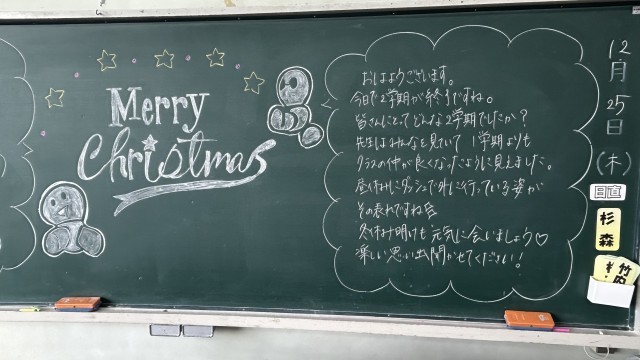 Merry
Christmas
おはようございます。
今日で2学期が終了ですね。
皆さんにとってどんな2学期でしたか?
先生はみんなを見ていて1学期よりも
クラスの仲が良くなったように見えました。
昼休みにダッシュで外に行っている姿が
その表れですね
冬休み明けも元気に会いましょう♡
楽しい思い出聞かせてください!
12月25日(木)
日直
杉森
竹内